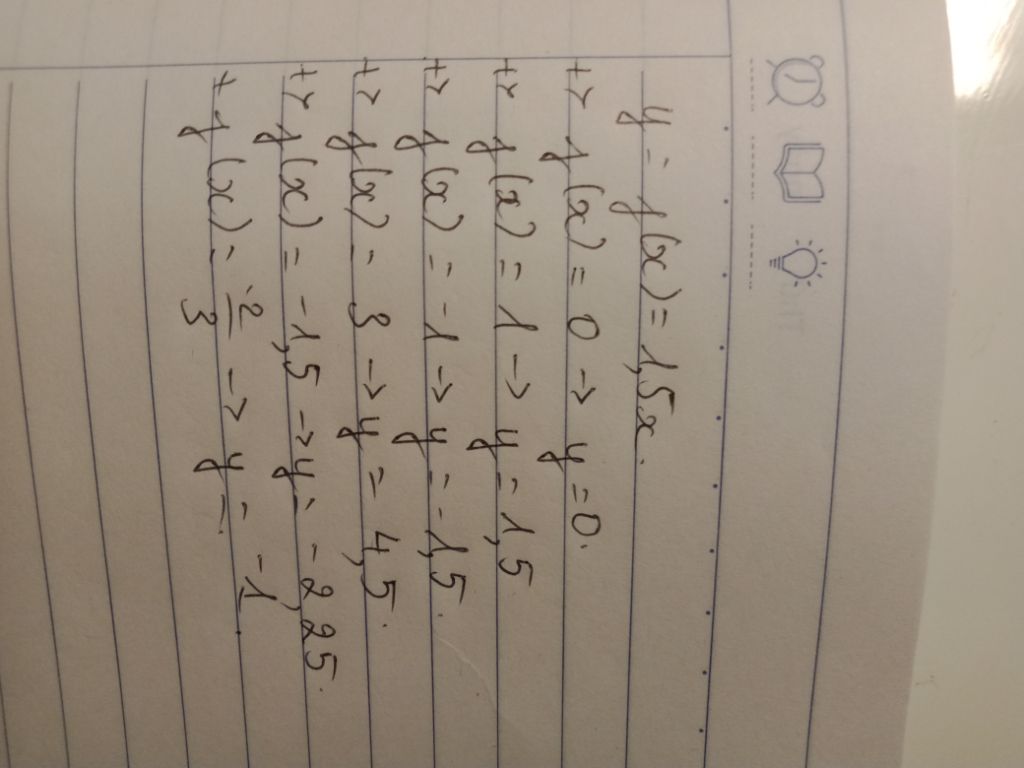 y = f(x) = 1,5x.
+> f(x) = 0 → y = 0.
+> f(x) = 1 → y = 1,5
+> f(x) = -1 → y = -1,5.
+> f(x) = 3 → y = 4,5.
+> f(x) = -1,5 → y = -2,25.
+ f(x) = -2/3 → y = -1.